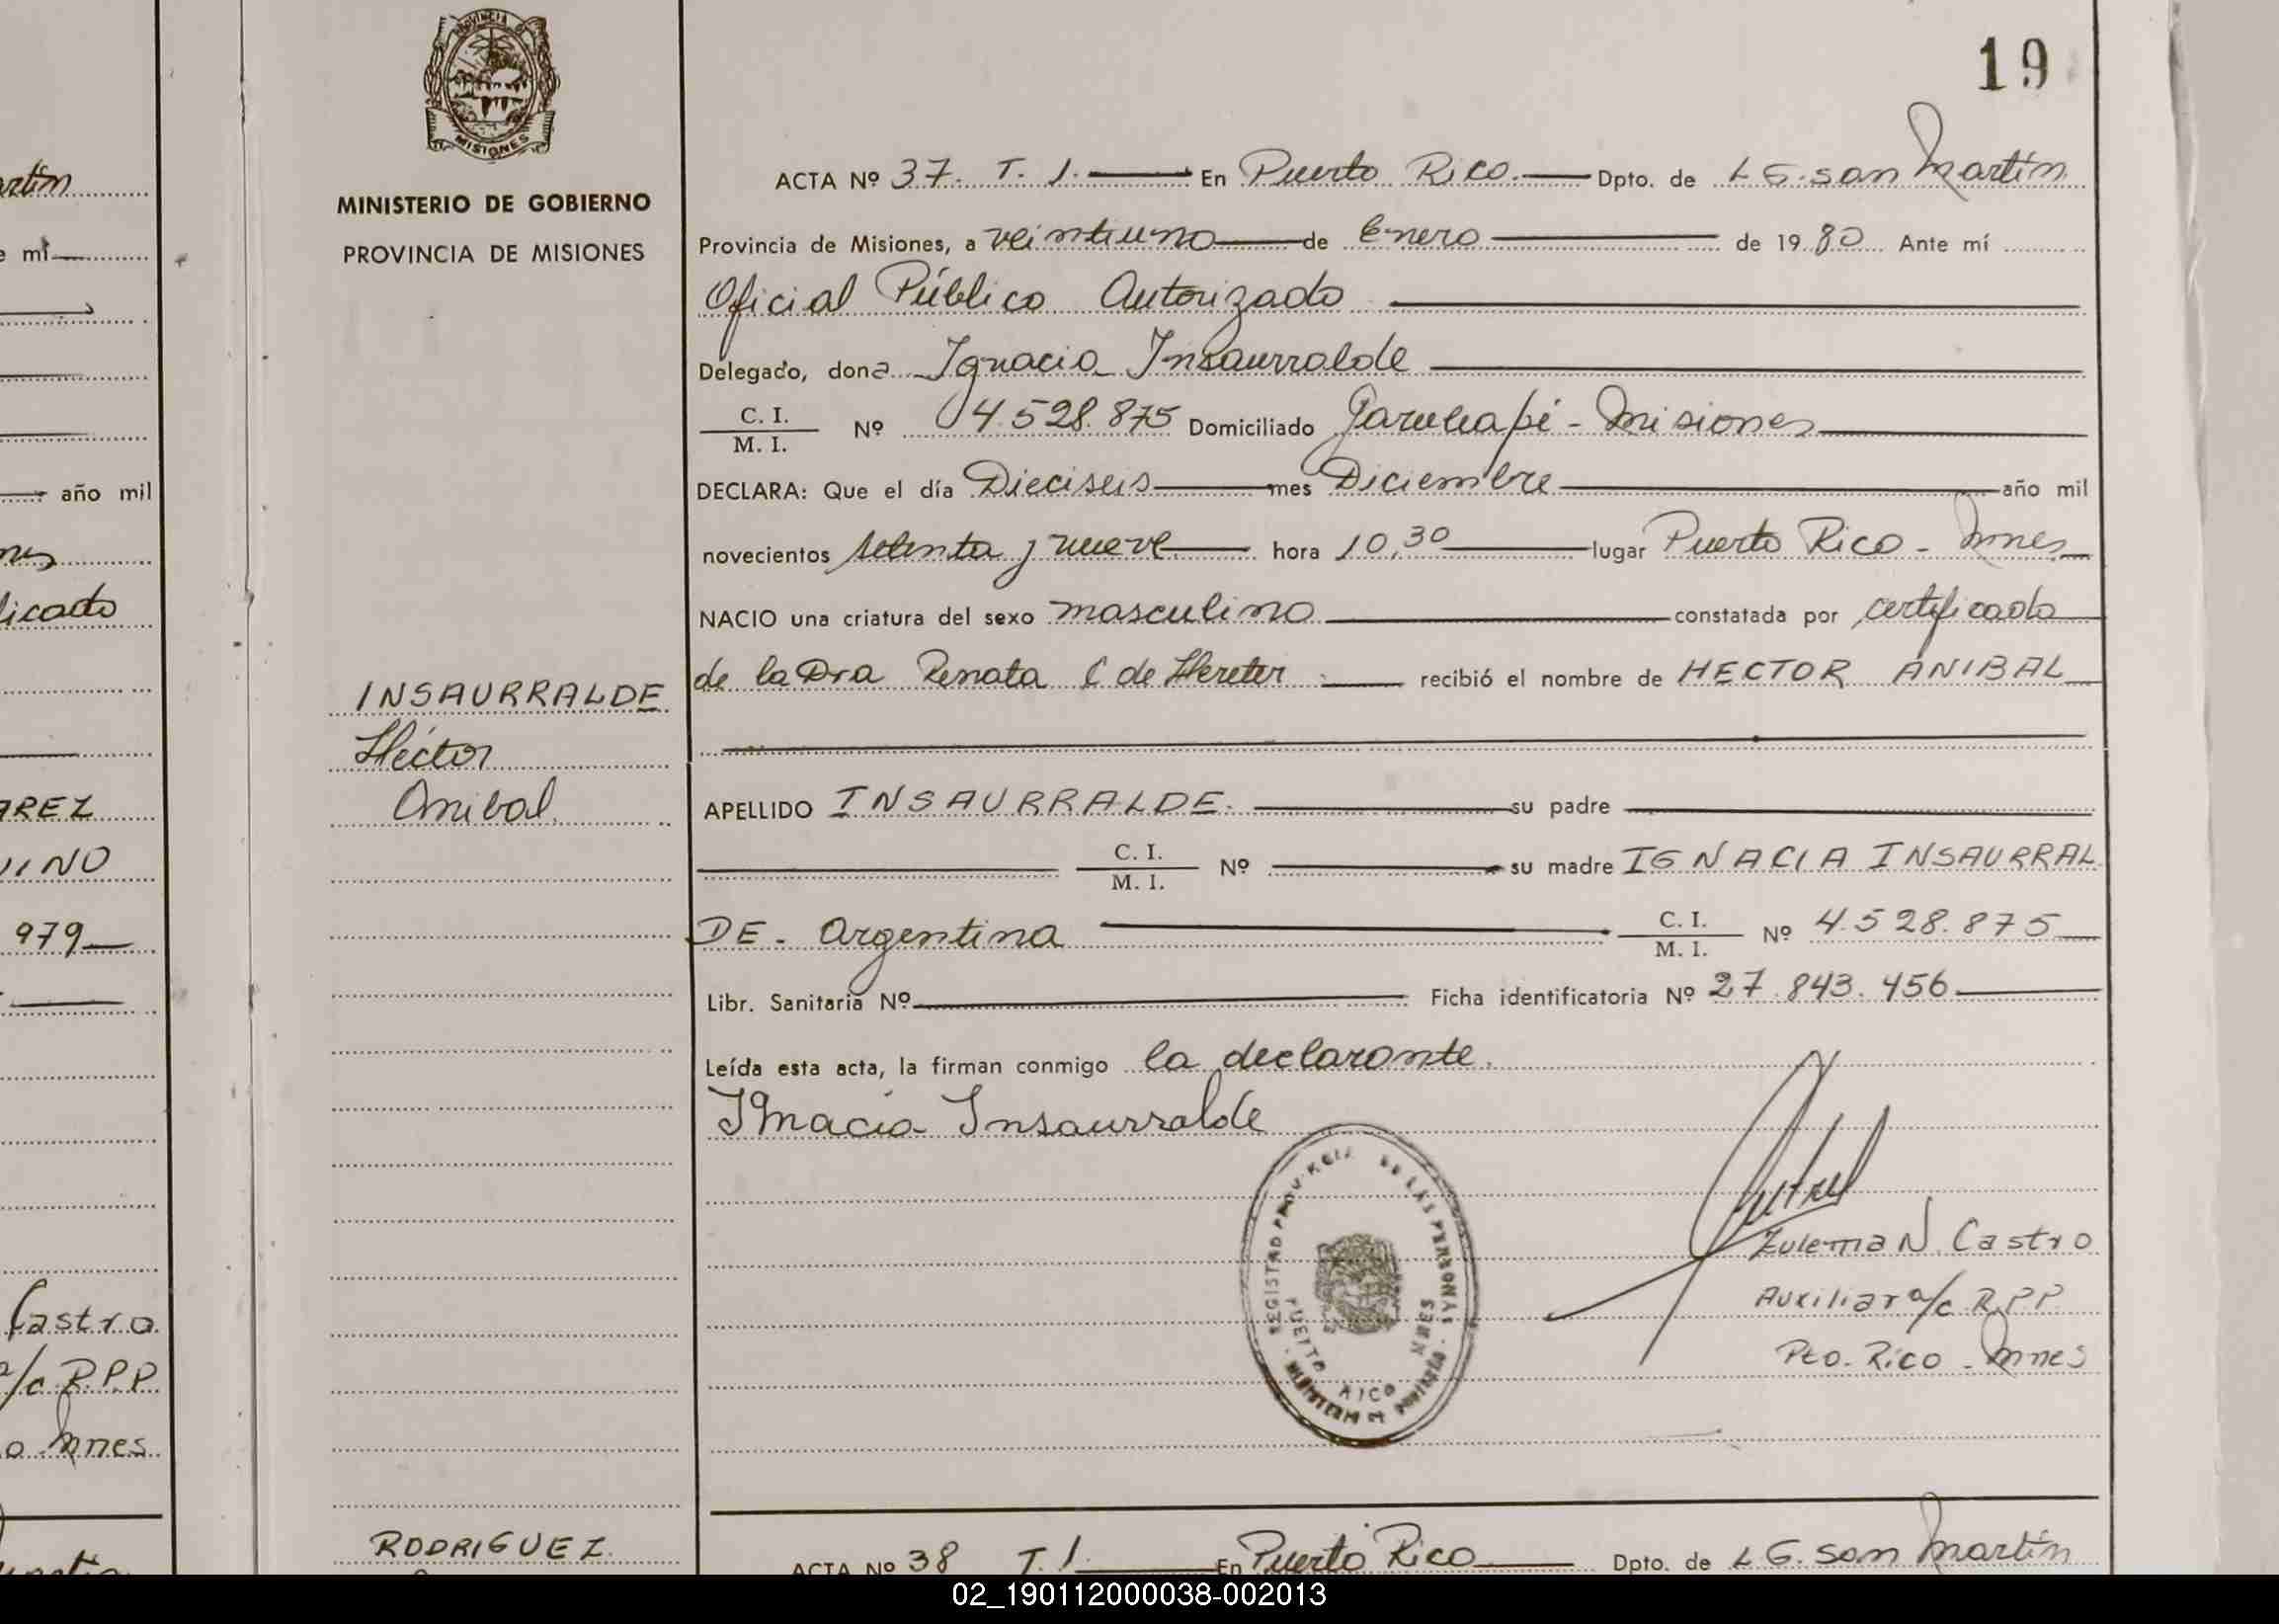 artín
e mí
año mil
nes
licado
AREZ
UINO
979
Castro
a/c R.P.P
o. Mnes
PROVINCIA
MISIONES
MINISTERIO DE GOBIERNO
PROVINCIA DE MISIONES
INSAURRALDE
Héctor
Anibal.
RODRIGUEZ
19
ACTA Nº 37. T. 1. En Puerto Rico. Dpto. de L G. san Martín
Provincia de Misiones, a veintiuno de Enero de 1980 Ante mí
Oficial Público Autorizado
Delegado, dona Ignacia Insaurralde
C. I. / M. I. Nº 4.528.875 Domiciliado Garuhapé - Misiones
DECLARA: Que el día Dieciseis mes Diciembre año mil
novecientos setenta y nueve hora 10,30 lugar Puerto Rico - Mnes
NACIO una criatura del sexo masculino constatada por certificado
de la Dra Renata C de Hereter recibió el nombre de HECTOR ANIBAL
APELLIDO INSAURRALDE. su padre
C. I. / M. I. Nº su madre IGNACIA INSAURRAL
DE - Argentina C. I. / M. I. Nº 4.528.875
Libr. Sanitaria Nº Ficha identificatoria Nº 27.843.456
Leída esta acta, la firman conmigo la declarante.
Ignacia Insaurralde
REGISTRO PROVINCIAL DE LAS PERSONAS
PUERTO RICO MNES
Zulema N. Castro
Auxiliar a/c R.P.P.
Pto. Rico - Mnes
ACTA Nº 38 T. 1. En Puerto Rico Dpto. de L G. San Martín
02_190112000038-002013